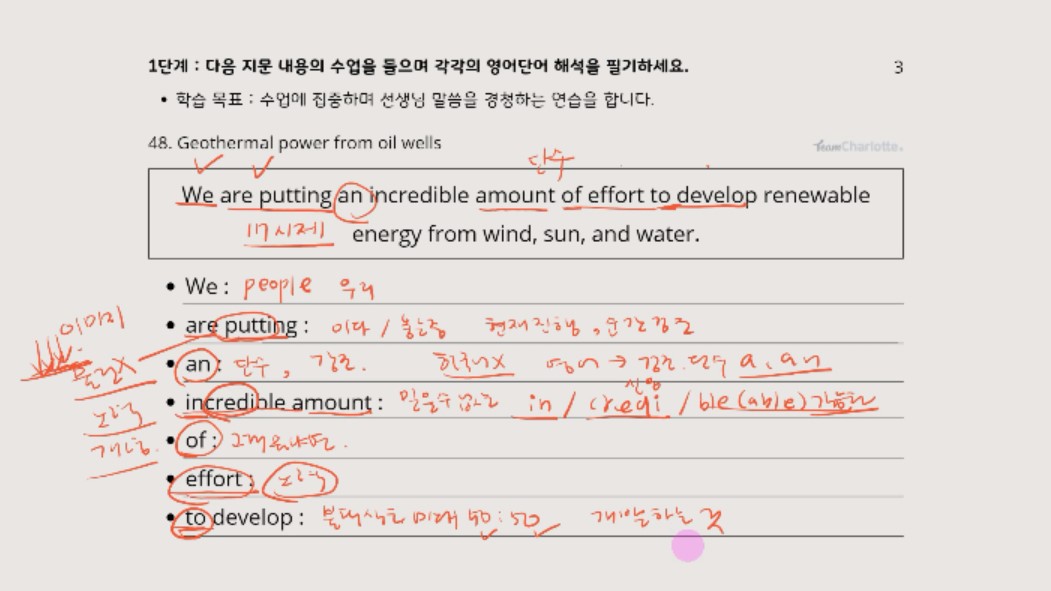 1단계 : 다음 지문 내용의 수업을 들으며 각각의 영어단어 해석을 필기하세요.
3
• 학습 목표 : 수업에 집중하며 선생님 말씀을 경청하는 연습을 합니다.
48. Geothermal power from oil wells
TeamCharlotte.
단수
We are putting an incredible amount of effort to develop renewable
17시제
energy from wind, sun, and water.
• We : people 우리
이미지
• are putting : 이다 / 현재진행, 순간강조
• an : 단수, 강조. 한국어X 영어 → 강조.단수 a, an
신앙
노력
• incredible amount : 믿을수없는 in / credi / ble (able) 가능한
개념.
• of :
• effort : 노력
• to develop : 미래 50:50 개발하는 것